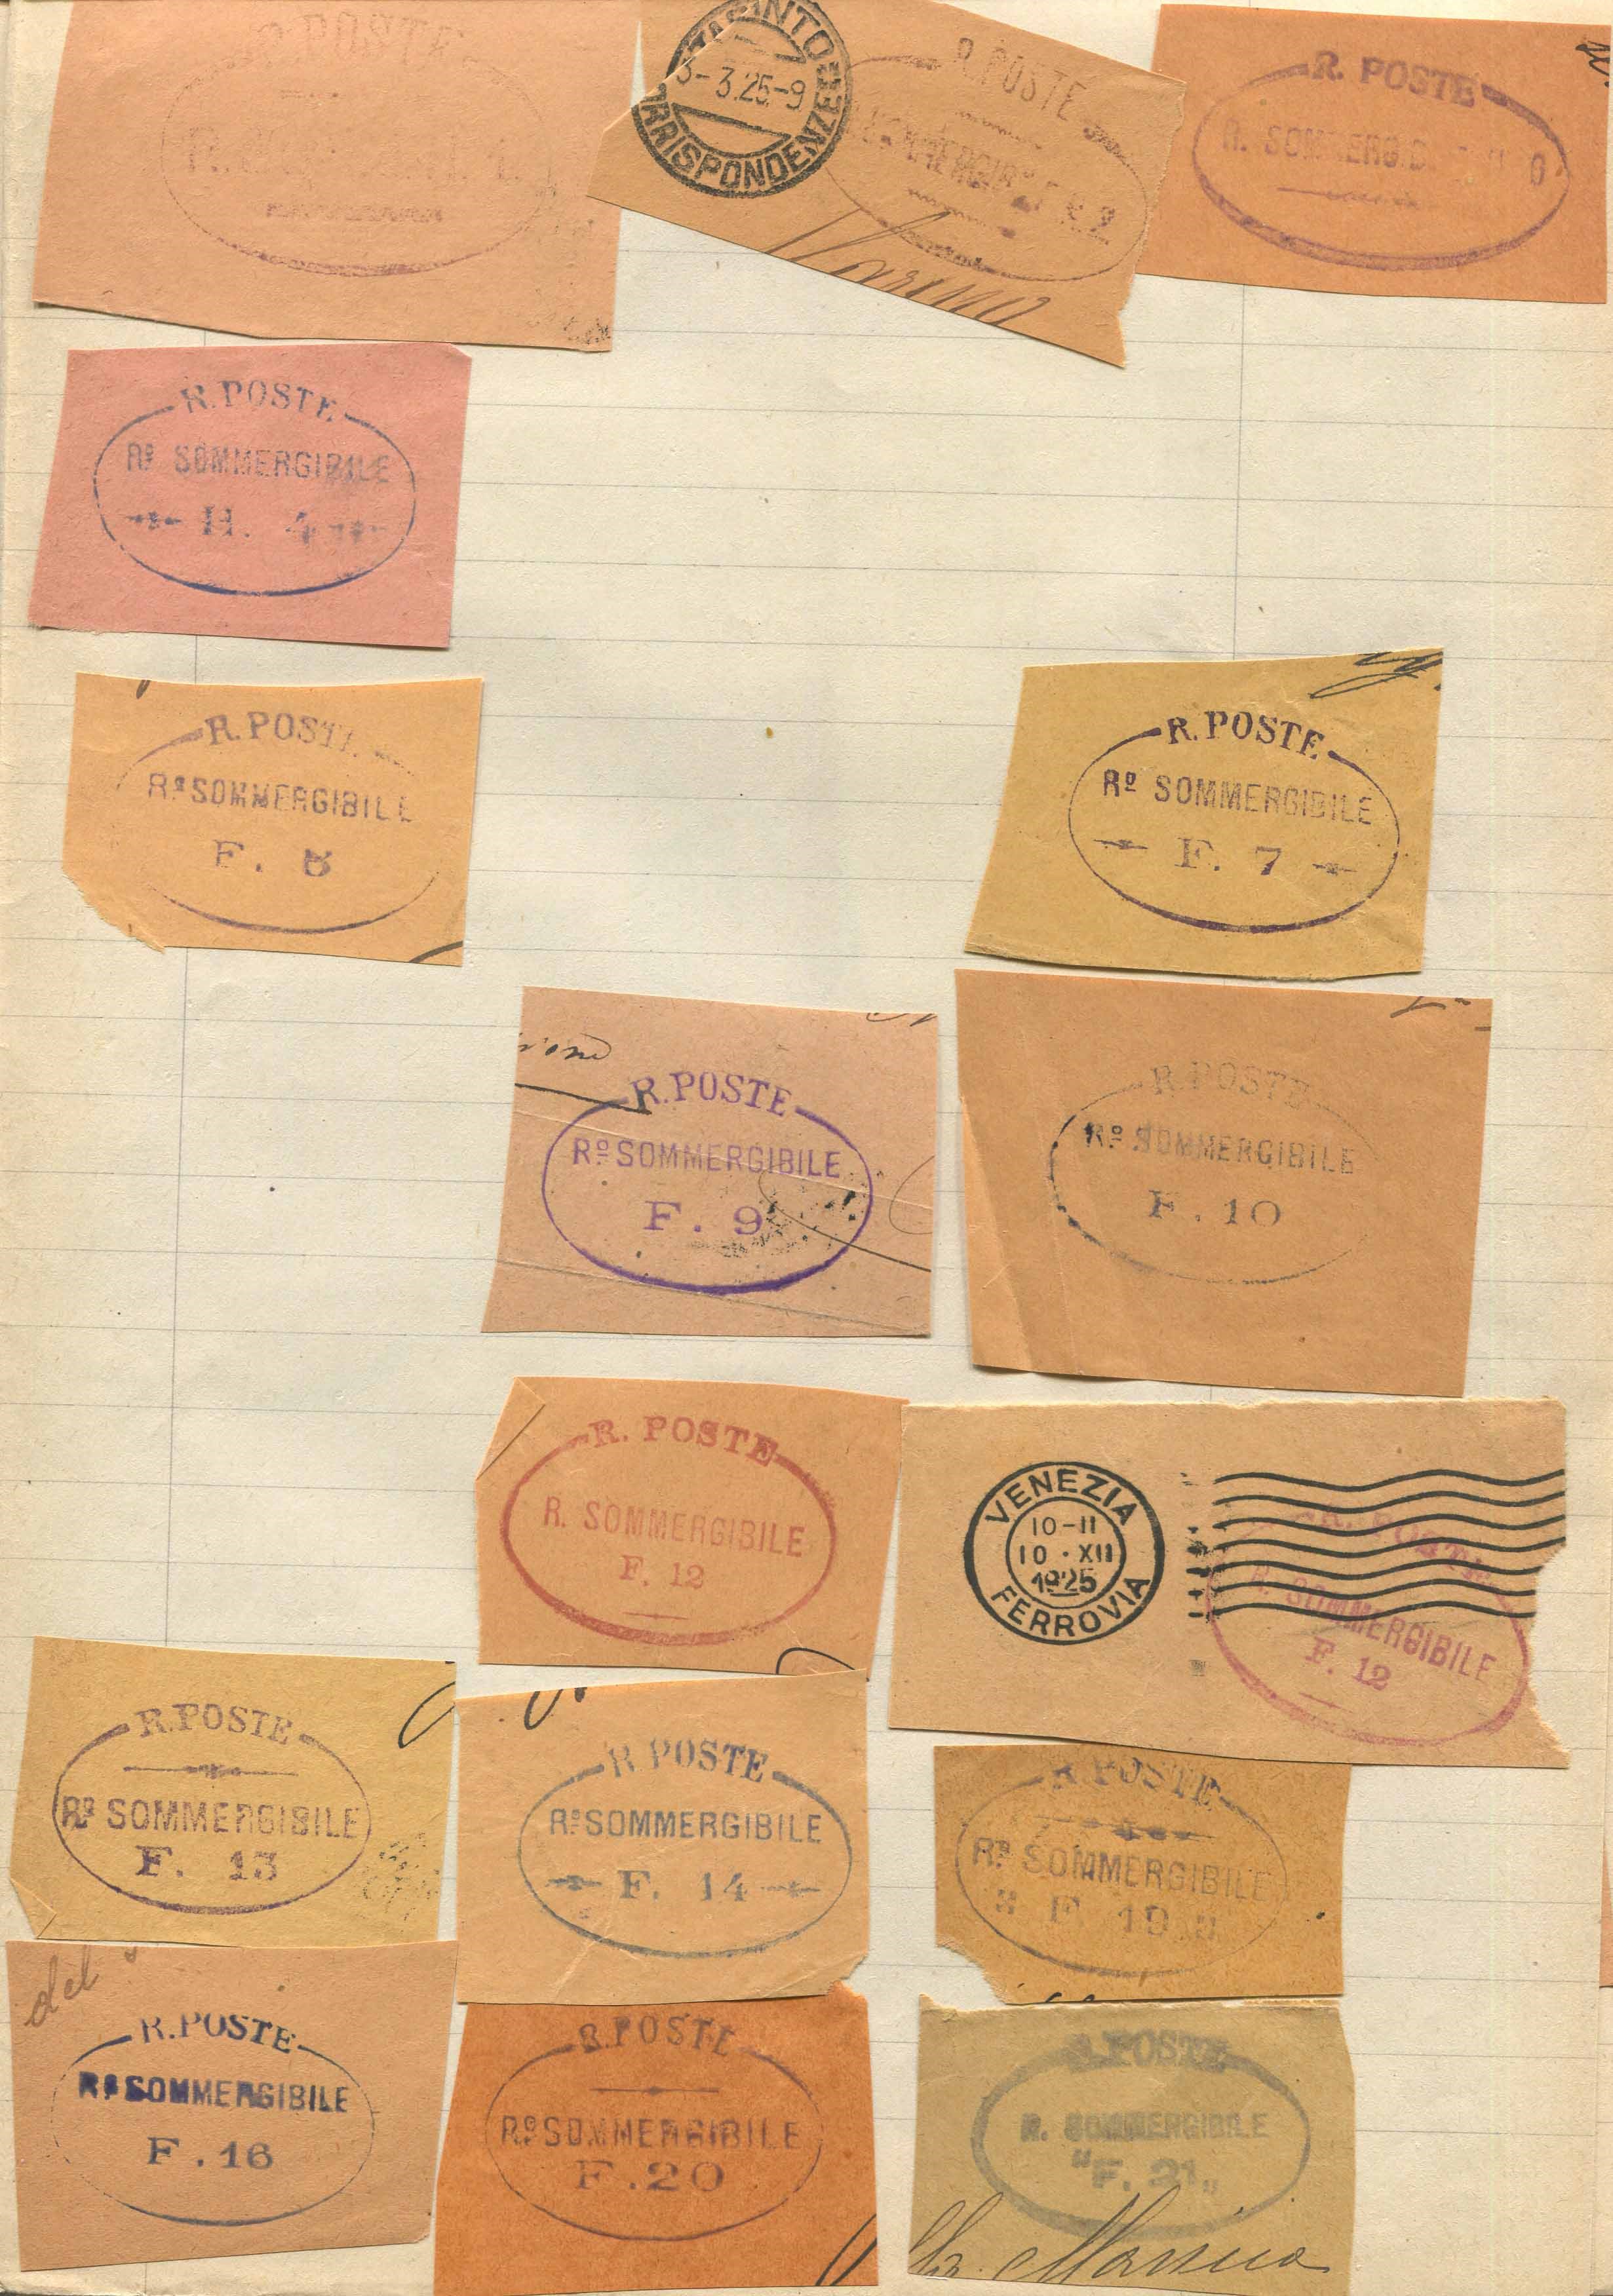 R. POSTE
TARANTO
3-3.25-9
CORRISPONDENZE
R. POSTE
R. POSTE
R. SOMMERGIBILE
R. POSTE
Rº SOMMERGIBILE
H. 4
R. POSTE
Rº SOMMERGIBILE
F.
R. POSTE
Rº SOMMERGIBILE
F. 7
R. POSTE
Rº SOMMERGIBILE
F. 9
R. POSTE
Rº SOMMERGIBILE
F. 10
R. POSTE
R. SOMMERGIBILE
F. 12
VENEZIA
10-11
10 · XII
1925
FERROVIA
R. POSTE
R. SOMMERGIBILE
F. 12
R. POSTE
Rº SOMMERGIBILE
F. 13
R. POSTE
Rº SOMMERGIBILE
F. 14
R. POSTE
Rº SOMMERGIBILE
F. 19
del
R. POSTE
Rº SOMMERGIBILE
F. 16
R. POSTE
Rº SOMMERGIBILE
F. 20
R. POSTE
R. SOMMERGIBILE
"F. 21"